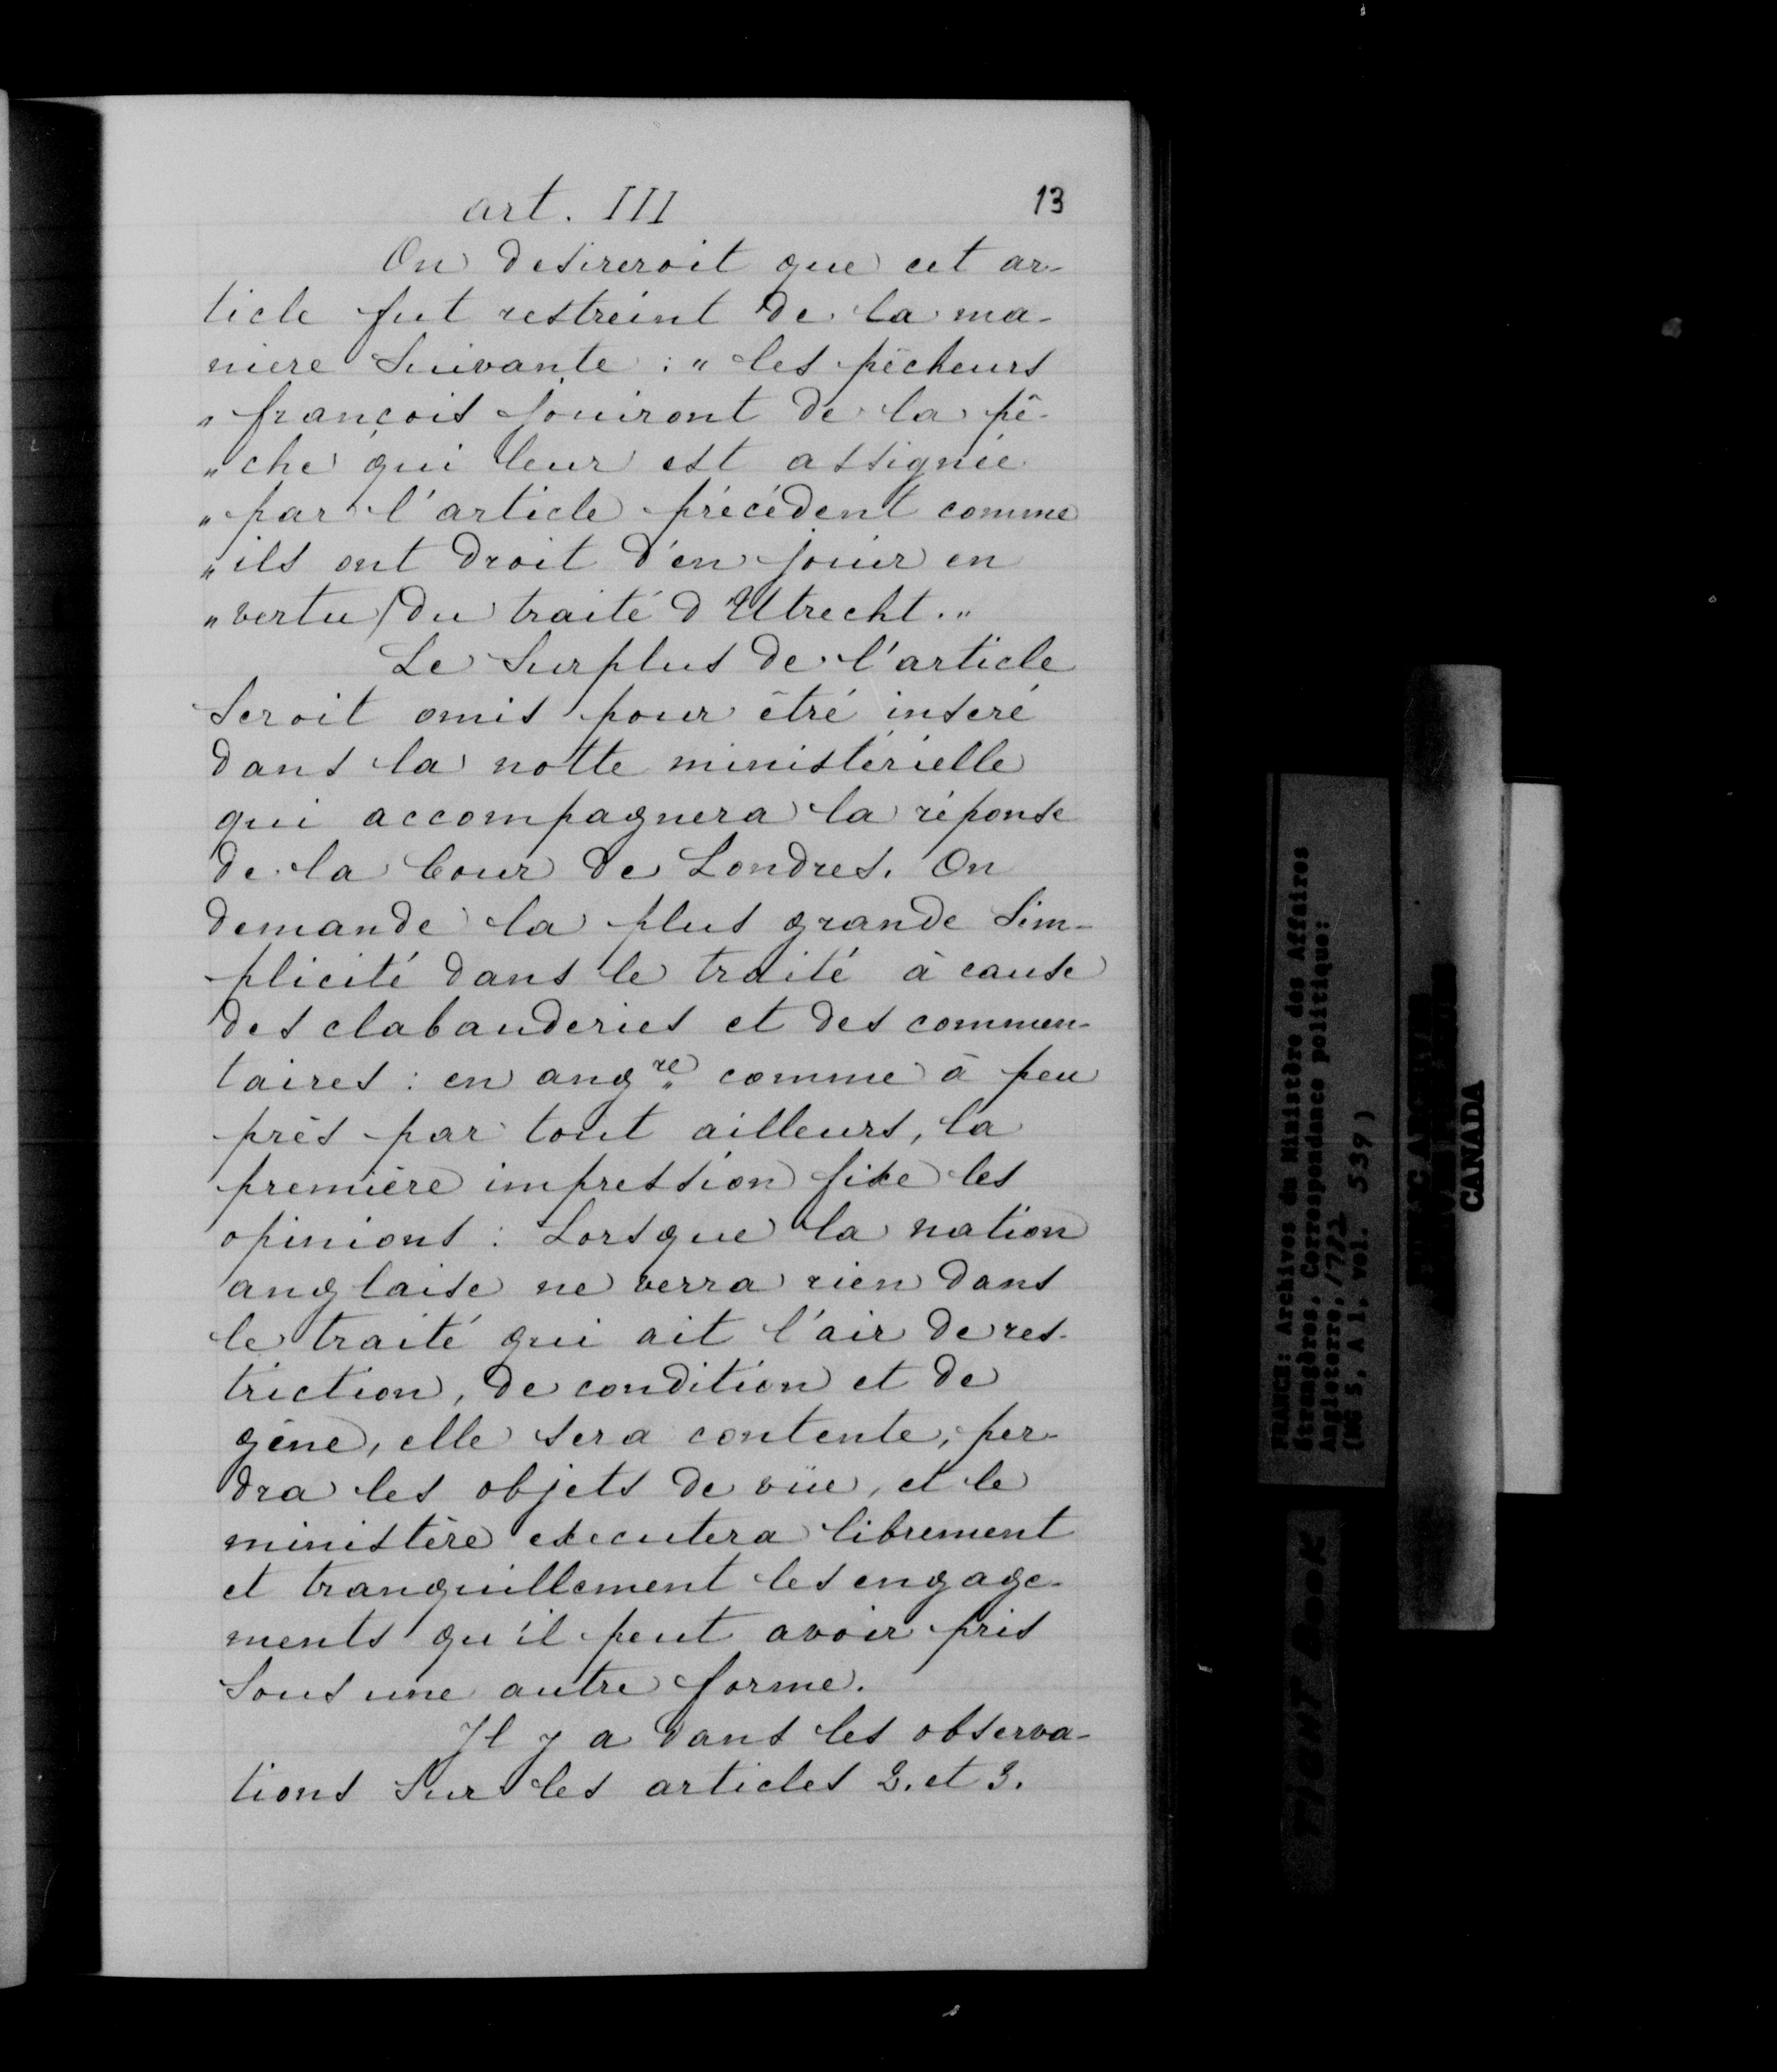 art. III
13
On desireroit que cet ar-
ticle fut restreint de la ma-
niere suivante : " les pêcheurs
" françois jouiront de la pê-
" che qui leur est assignée
" par l'article précédent comme
" ils ont droit d'en jouir en
" vertu du traité d'Utrecht. "
Le surplus de l'article
seroit omis pour être inséré
dans la notte ministérielle
qui accompagnera la réponse
de la Cour de Londres. On
demande la plus grande sim-
plicité dans le traité à cause
des clabauderies et des commen-
taires : en angre comme à peu
près par tout ailleurs, la
première impression fixe les
opinions : Lorsque la nation
anglaise ne verra rien dans
le traité qui ait l'air de res-
triction, de condition et de
gêne, elle sera contente, per-
dra les objets de vüe, et le
ministère executera librement
et tranquillement les engage-
ments qu'il peut avoir pris
sous une autre forme.
Il y a dans les observa-
tions sur les articles 2. et 3.
FRANCE: Archives du Ministère des Affaires
Étrangères, Correspondance politique:
Angleterre,
(MG 5, A 1, vol. 539)
CANADA
TIGHT BOOK